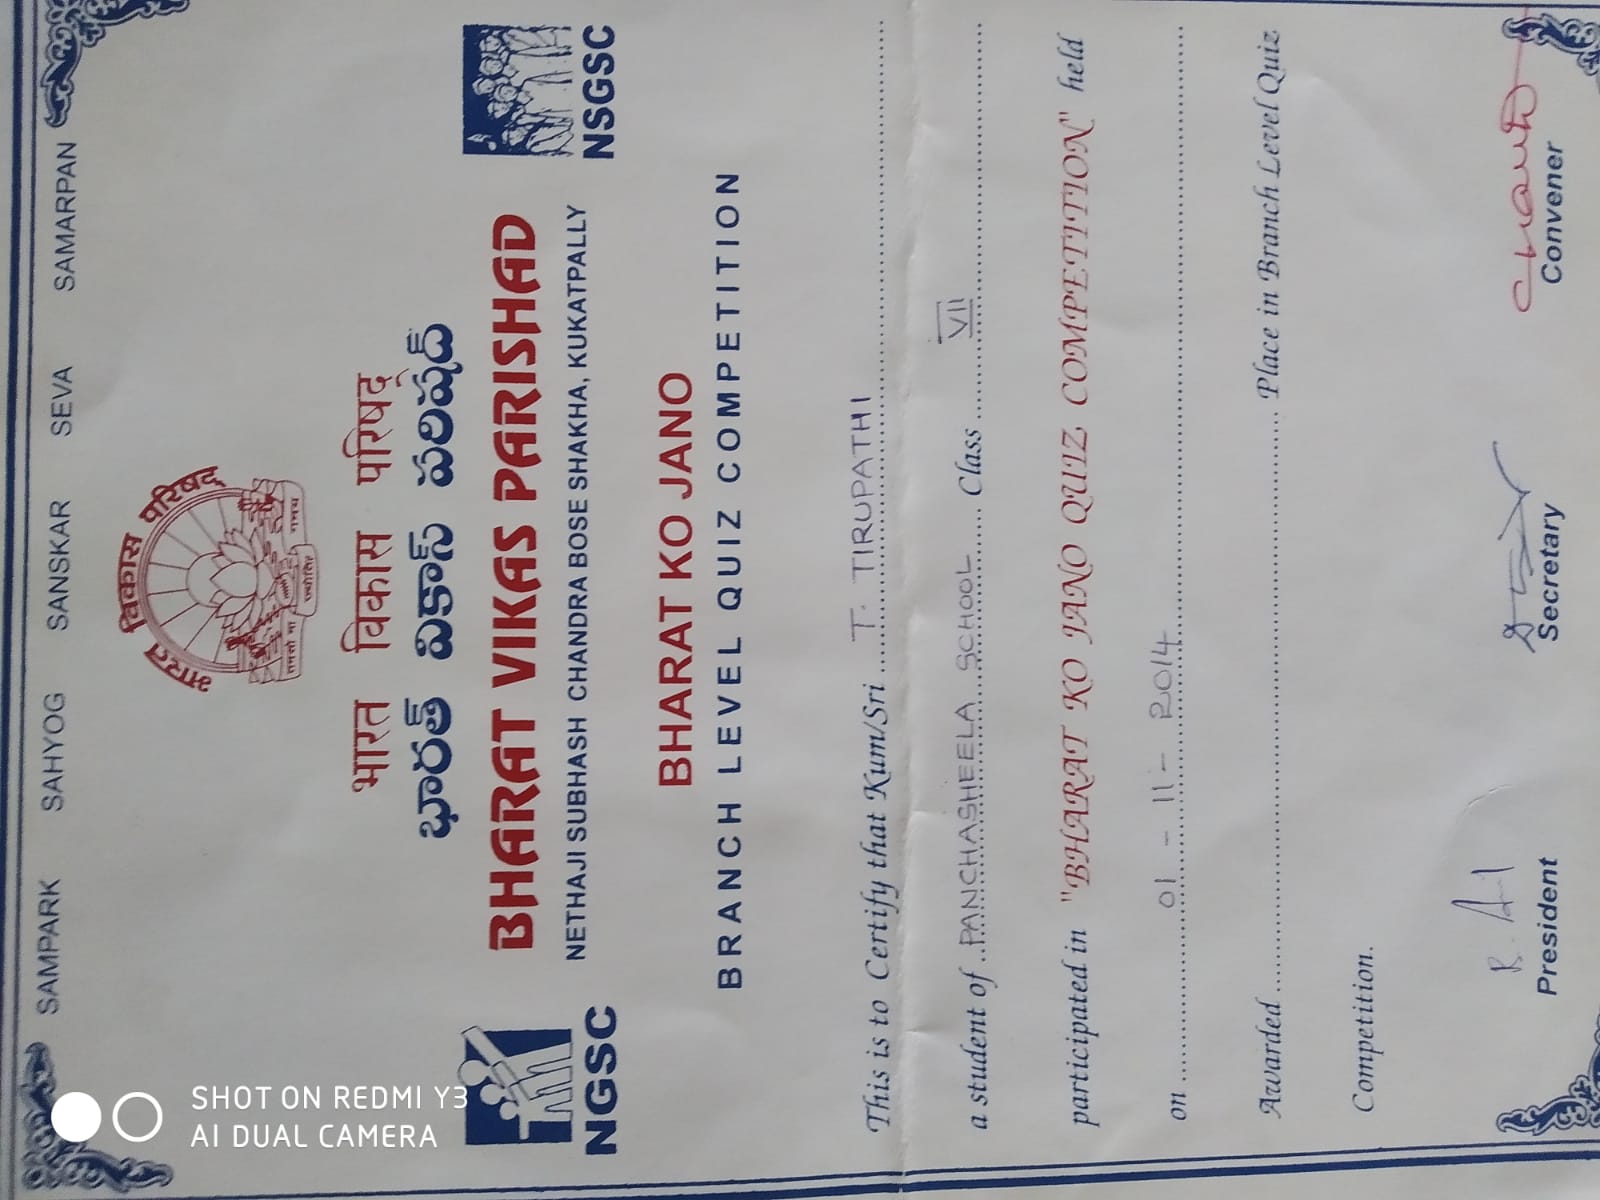 SAMPARK SAHYOG SANSKAR SEVA SAMARPAN
भारत विकास परिषद्
तमसो मा ज्योतिर्गमय
भारत विकास परिषद्
భారత్ వికాస్ పరిషద్
BHARAT VIKAS PARISHAD
NETHAJI SUBHASH CHANDRA BOSE SHAKHA, KUKATPALLY
NGSC
NSGSC
BHARAT KO JANO
BRANCH LEVEL QUIZ COMPETITION
This is to Certify that Kum/Sri T. TIRUPATHI
a student of PANCHASHEELA SCHOOL Class VII
participated in "BHARAT KO JANO QUIZ COMPETITION" held
on 01-11-2014
Awarded Place in Branch Level Quiz
Competition.
President Secretary Convener
SHOT ON REDMI Y3
AI DUAL CAMERA